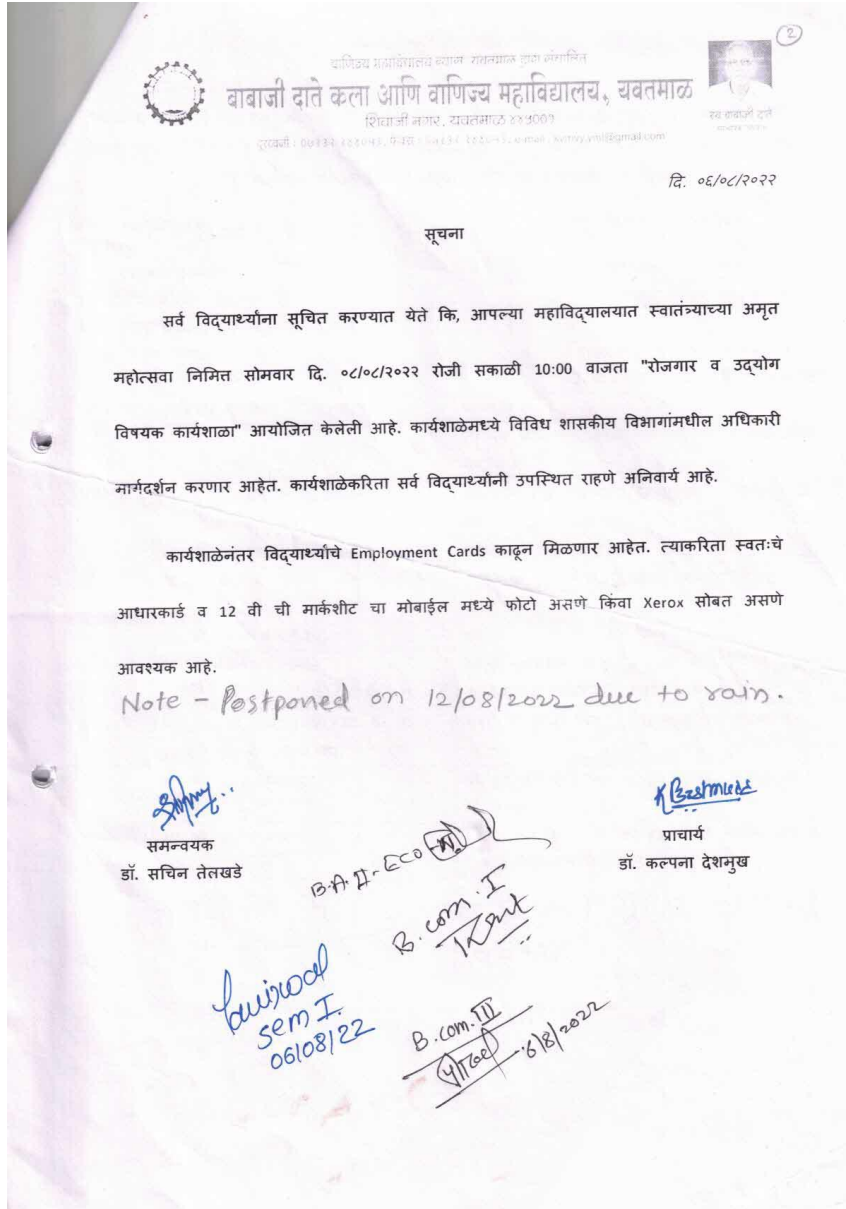 2
वाणिज्य महाविद्यालय न्यास यवतमाळ द्वारा संचालित
बाबाजी दाते कला आणि वाणिज्य महाविद्यालय, यवतमाळ
शिवाजी नगर, यवतमाळ ४४५००१
स्व बाबाजी दाते
दि. ०६/०८/२०२२
सूचना
सर्व विद्यार्थ्यांना सूचित करण्यात येते कि, आपल्या महाविद्यालयात स्वातंत्र्याच्या अमृत
महोत्सवा निमित्त सोमवार दि. ०८/०८/२०२२ रोजी सकाळी 10:00 वाजता "रोजगार व उद्योग
विषयक कार्यशाळा" आयोजित केलेली आहे. कार्यशाळेमध्ये विविध शासकीय विभागांमधील अधिकारी
मार्गदर्शन करणार आहेत. कार्यशाळेकरिता सर्व विद्यार्थ्यांनी उपस्थित राहणे अनिवार्य आहे.
कार्यशाळेनंतर विद्यार्थ्यांचे Employment Cards काढून मिळणार आहेत. त्याकरिता स्वतःचे
आधारकार्ड व 12 वी ची मार्कशीट चा मोबाईल मध्ये फोटो असणे किंवा Xerox सोबत असणे
आवश्यक आहे.
Note - Postponed on 12/08/2022 due to rain.
समन्वयक
डॉ. सचिन तेलखडे
प्राचार्य
डॉ. कल्पना देशमुख
B.A. II - ECO
B. com. I
sem I.
06/08/22
B.com. III
6/8/2022